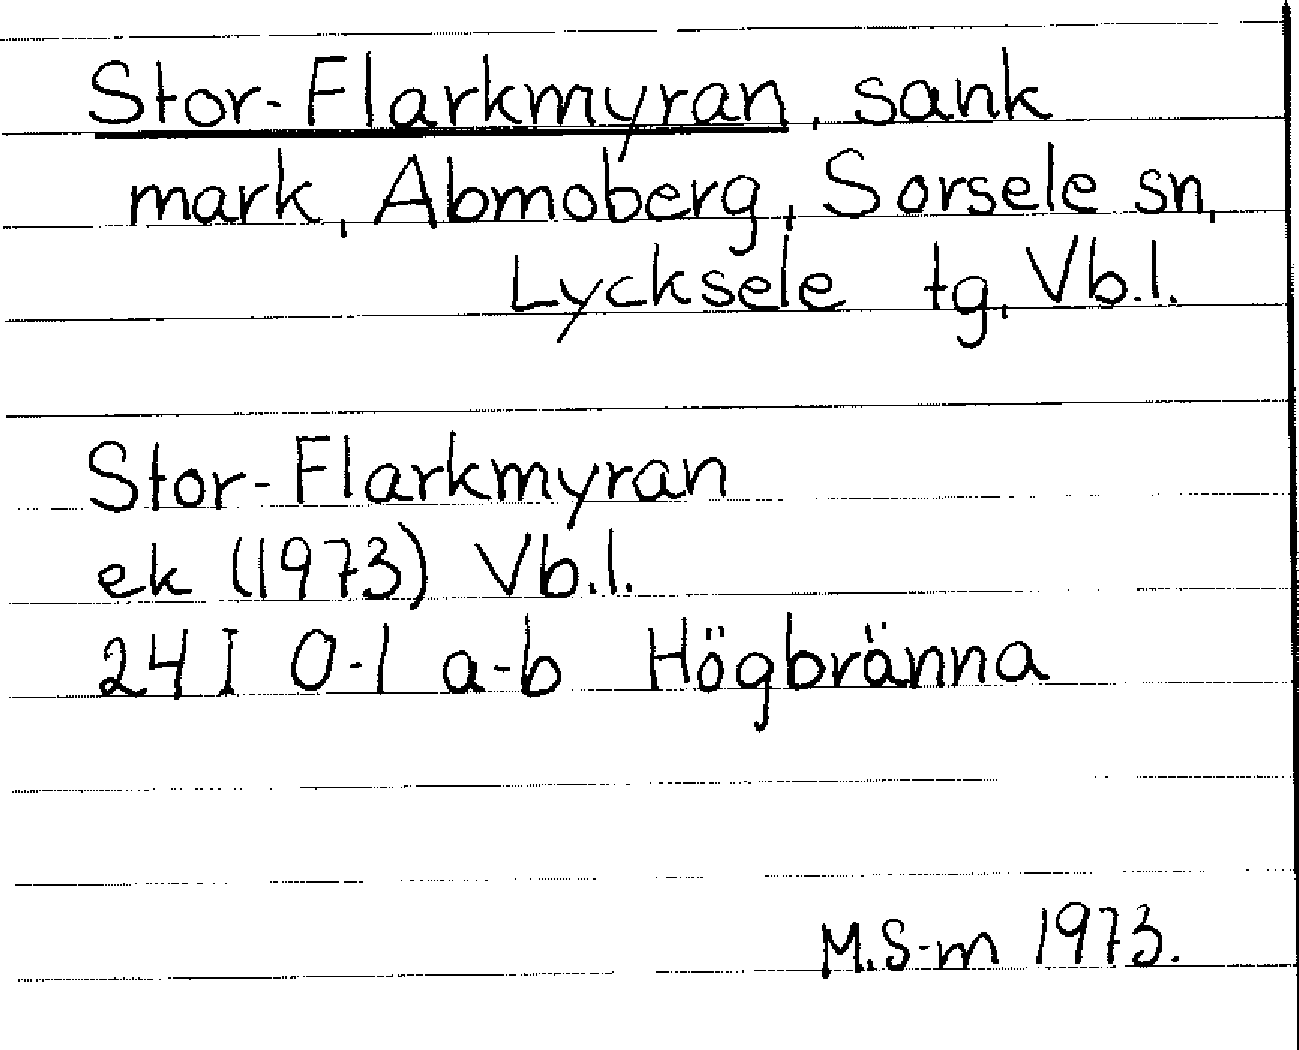 Stor-Flarkmyran, sank
mark, Abmoberg, Sorsele sn,
Lycksele tg, Vb.l.
Stor-Flarkmyran
ek (1973) Vb.l.
24 I 0-1 a-b Högbränna
M.S-m 1973.